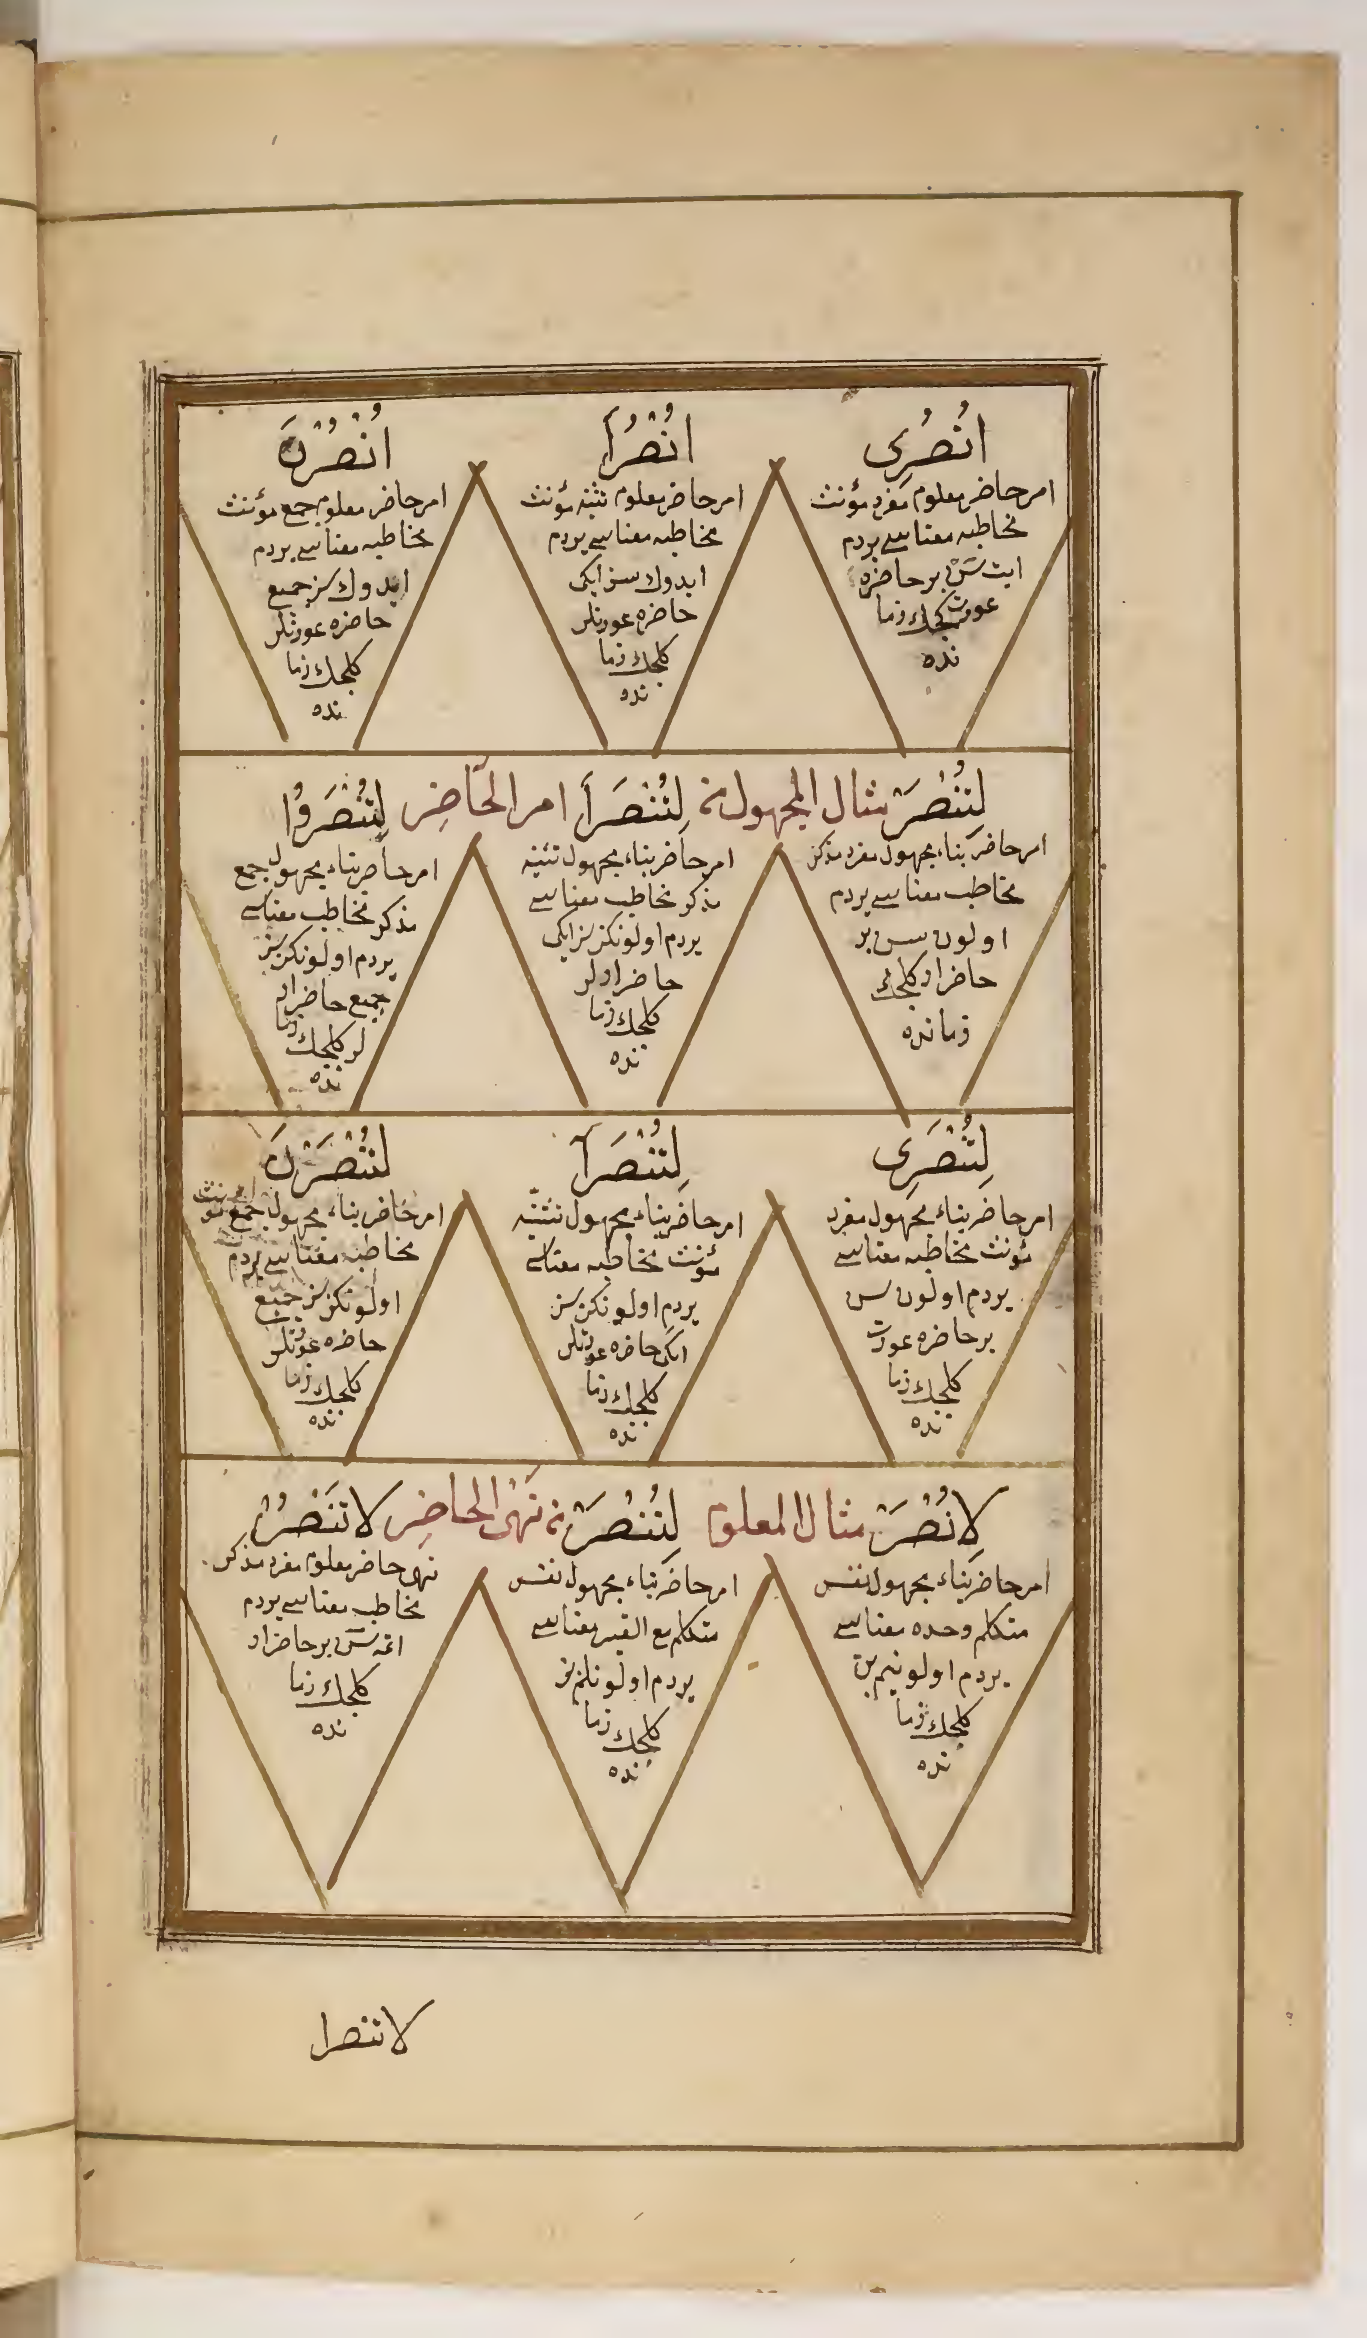 اُنْصُرِى
امر حاضر معلوم مفرد مؤنث
مخاطبه معناسى يردم
ايت سن بر حاضره
عورت كلجك زما
نده
اُنْصُرَا
امر حاضر معلوم تثنيه مؤنث
مخاطبه معناسى يردم
ايدوك سز ايكى
حاضره عورتلر
كلجك زما
نده
اُنْصُرْنَ
امر حاضر معلوم جمع مؤنث
مخاطبه معناسى يردم
ايدوك سز جميع
حاضره عورتلر
كلجك زما
نده
لِتُنْصَرْ مثال المجهول نه لِتُنْصَرَا امر الحَاضِر لِتُنْصَرُوا
امر حاضر بناء مجهول مفرد مذكر
مخاطب معناسى يردم
اولون سن بر
حاضر ار كلجك
زمانده
امر حاضر بناء مجهول تثنيه
مذكر مخاطب معناسى
يردم اولونكز سز ايكى
حاضر ارلر
كلجك زما
نده
امر حاضر بناء مجهول جمع
مذكر مخاطب معناسى
يردم اولونكز سز
جميع حاضر ار
لر كلجك زما
نده
لِتُنْصَرِى
امر حاضر بناء مجهول مفرد
مؤنث مخاطبه معناسى
يردم اولون سن
بر حاضره عورت
كلجك زما
نده
لِتُنْصَرَا
امر حاضر بناء مجهول تثنيه
مؤنث مخاطبه معناسى
يردم اولونكز سز
ايكى حاضره عورتلر
كلجك زما
نده
لِتُنْصَرْنَ
امر حاضر بناء مجهول جمع مؤنث
مخاطبه معناسى يردم
اولونكز سز جميع
حاضره عورتلر
كلجك زما
نده
لِاُنْصَرْ مثال المعلوم لِنُنْصَرْ نه نَهْى الحاضِر لا تَنْصُرْ
امر حاضر بناء مجهول نفس
متكلم وحده معناسى
يردم اولونيم بن
كلجك زما
نده
امر حاضر بناء مجهول نفس
متكلم مع الغير معناسى
يردم اولونلم بز
كلجك زما
نده
نهى حاضر معلوم مفرد مذكر
مخاطب معناسى يردم
اتمه سن بر حاضر ار
كلجك زما
نده
لا تنصرا